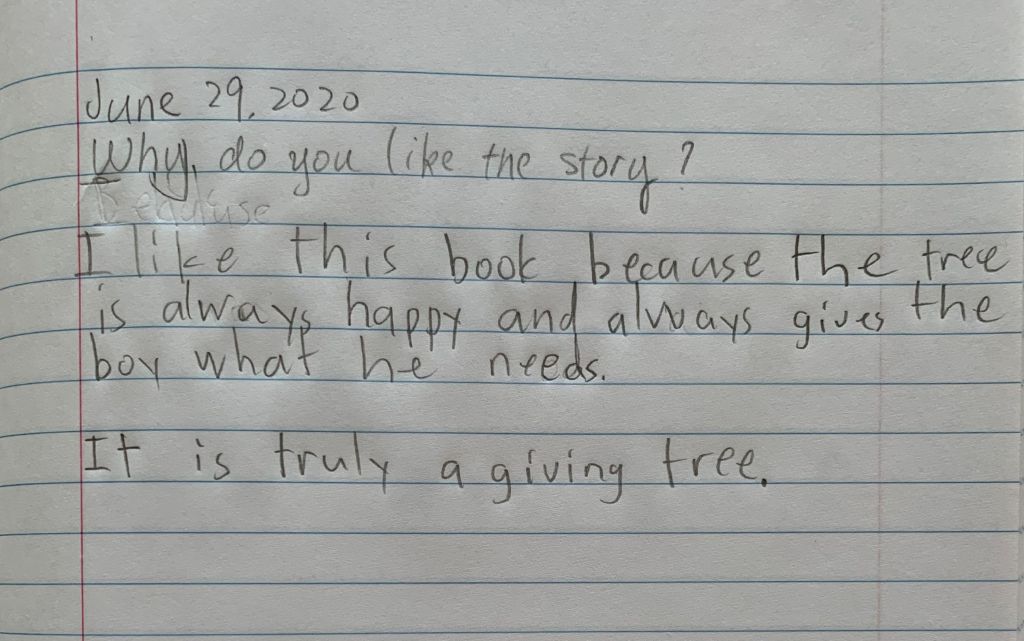 June 29, 2020
Why, do you like the story?
I like this book because the tree
is always happy and always gives the
boy what he needs.
It is truly a giving tree.